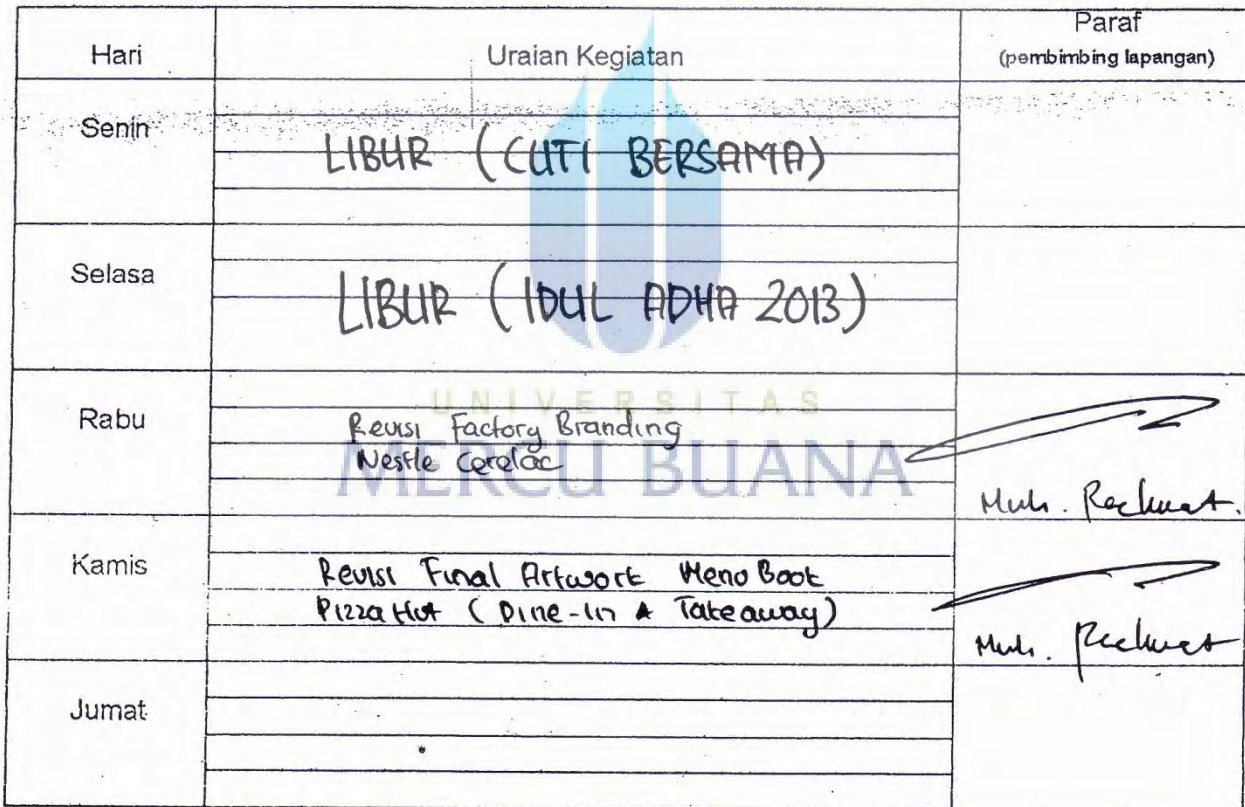 Hari
Uraian Kegiatan
Paraf
(pembimbing lapangan)
Senin
LIBUR (CUTI BERSAMA)
Selasa
LIBUR (IDUL ADHA 2013)
UNIVERSITAS
MERCU BUANA
Rabu
Revisi Factory Branding
Nestle Cerelac
Muh. Rachmat.
Kamis
Revisi Final Artwork Menu Book
Pizza Hut (Dine-In & Takeaway)
Muh. Rachmat
Jumat